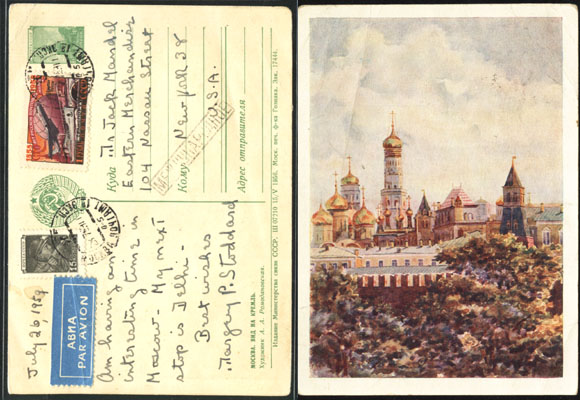 July 26, 1959
АВИА
PAR AVION
Am having an
interesting time in
Moscow - My next
stop is Delhi -
Best wishes
Margery P. Stoddard
Куда Mr Jack Mandel
Eastern Merchandise
104 Nassau Street
Кому New York 38
U.S.A.
Адрес отправителя
МОСКВА. ВИД НА КРЕМЛЬ.
Художник А. А. Ромодановская.
Издание Министерства связи СССР. Ш 07710 16/V 1956. Моск. печ. ф-ка Гознака. Зак. 17444.